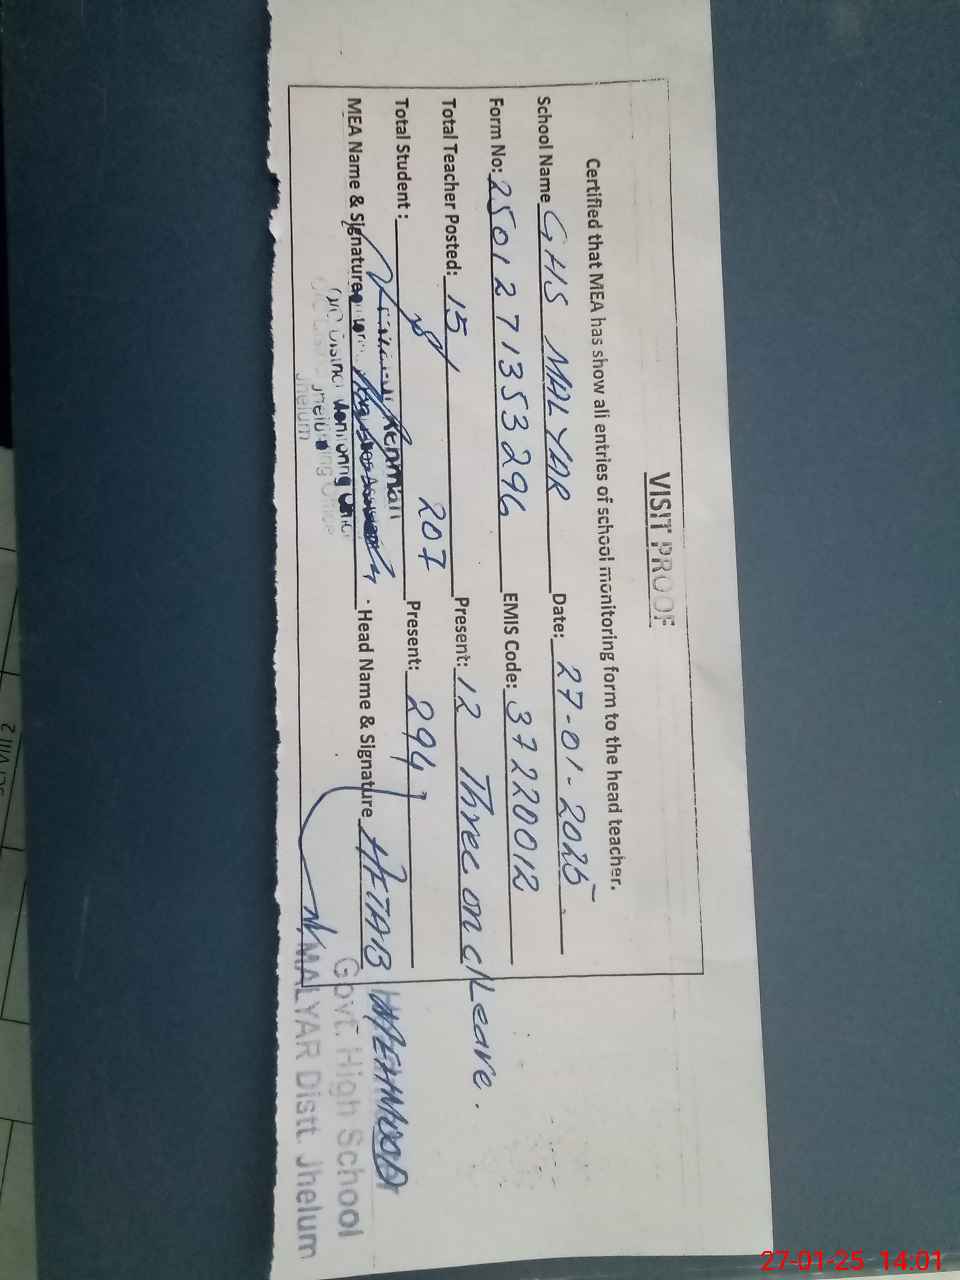 VISIT PROOF
Certified that MEA has show all entries of school monitoring form to the head teacher.
School Name GHS MALYAR Date: 27-01-2025
Form No: 2501271353296 EMIS Code: 37220012
Total Teacher Posted: 15 Present: 12 Three on c/Leave.
Total Student : 207 Present: 294
MEA Name & Signature Rehman Head Name & Signature AFTAB MEHMOOD
O/C District Monitoring Office
Jhelum
Govt. High School
MALYAR Distt. Jhelum
27-01-25 14:01